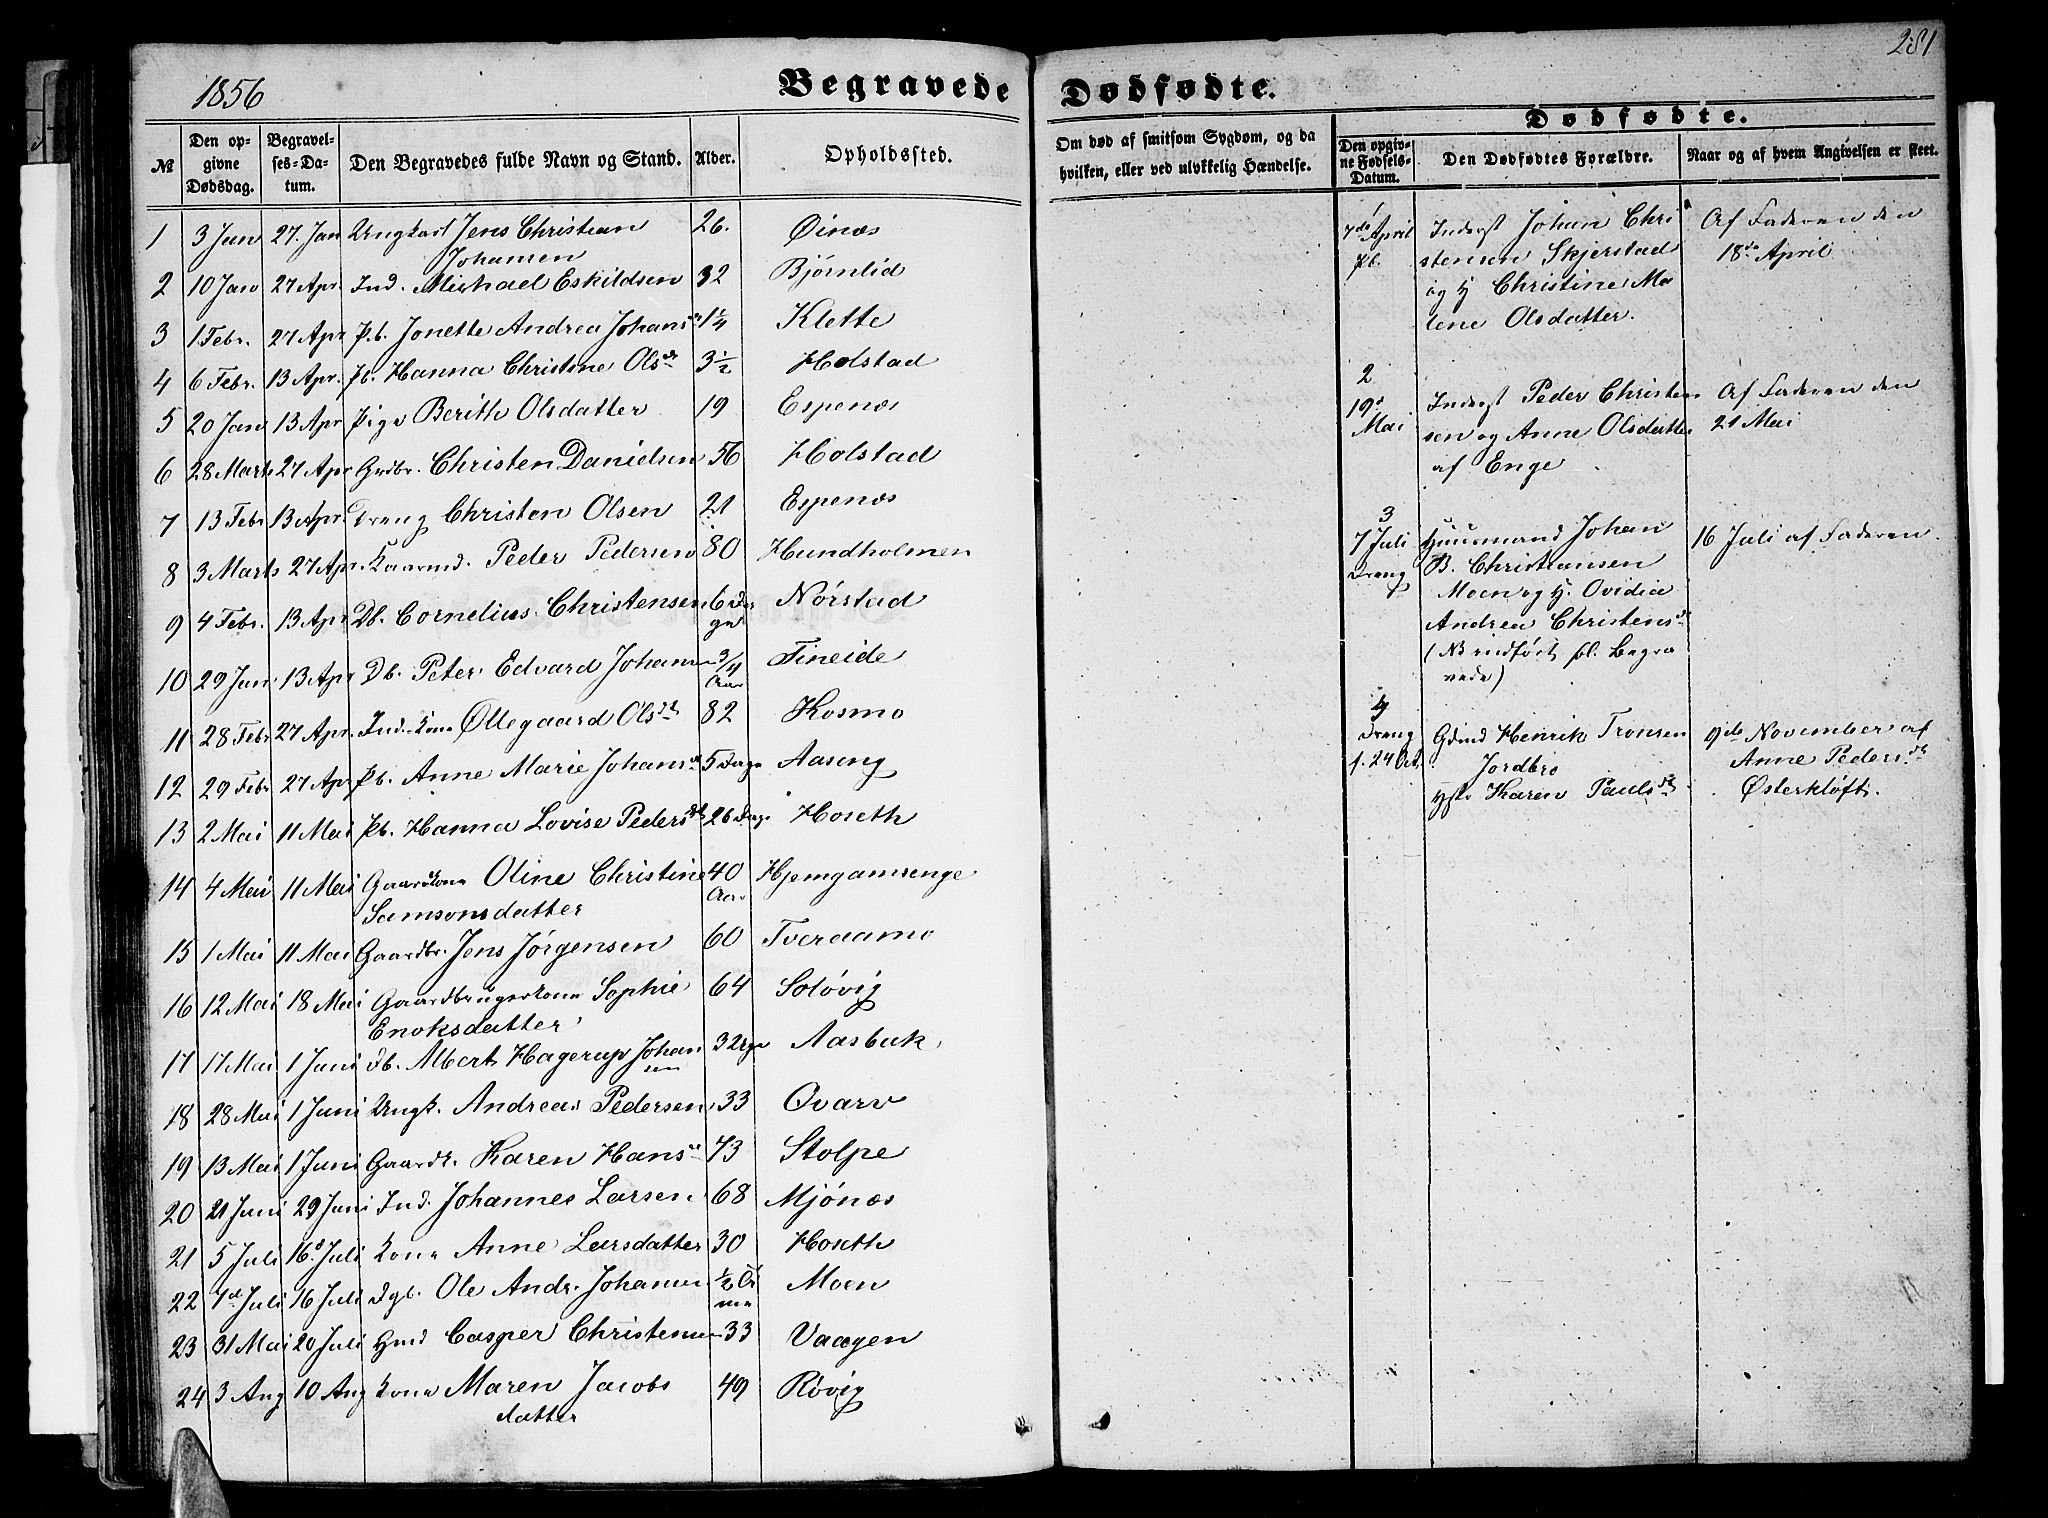 1856
Begravede
№
Den op-
givne
Dødsdag.
Begravel-
ses-Da-
tum.
Den Begravedes fulde Navn og Stand.
Alder.
Opholdssted.
1 3 Jan 27. Jan Ungkarl Jens Christian 26. Øinæs
Johansen
2 10 Jan 27 Apr. Ind. Michael Eskildsen 32 Bjørnlid
3 1 Febr. 27 Apr Pb. Jonette Andrea Johans 1¼ Klette
4 6 Febr. 13 Apr. Pb. Hanna Christine Olsdr 3½ Holstad
5 20 Jan 13 Apr Pige Berith Olsdatter 19 Espenæs
6 28 Marts 27 Apr Grdbr. Christen Danielsen 56 Holstad
7 13 Febr 13 Apr. Dreng Christen Olsen 21 Espenæs
8 3 Marts 27 Apr. Kaarmd. Peder Pedersen 80 Hundholmen
9 4 Febr. 13 Apr Db. Cornelius Christensen 6 Da
ge
Nørstad
10 29 Jan 13 Apr Db. Peter Edvard Johansen 3/4
Aar
Fineide
11 28 Febr 27 Apr. Ind. Kone Øllegaard Olsdt 82 Kosmo
12 29 Febr 27 Apr Pb. Anne Marie Johansdr 5 Dage Aaseng
13 2 Mai 11 Mai Pb. Hanna Lovise Pedersdtr 26 Dage Hoseth
14 4 Mai 11 Mai Gaardkone Oline Christine 40
Aar
Hjemgamsenge
Samsonsdatter
15 1 Mai 11 Mai Gaardbr. Jens Jørgensen 60 Tveraamo
16 12 Mai 18 Mai Gaardbrugerkone Sophie 64 Soløvig
Enoksdatter
17 17 Mai 1 Juni Db. Albert Hagerup Johan 32 Aasbak
sen
18 28 Mai 1 Juni Ungk. Andreas Pedersen 33 Qvarv
19 13 Mai 1 Juni Gaardk. Karen Hansdr 73 Stolpe
20 21 Juni 29 Juni Ind. Johannes Larsen 68 Mjønæs
21 5 Juli 16d Juli Kone Anne Larsdatter 30 Hoseth
22 7de Juli 16 Juli Dgb. Ole Andr. Johansen ½ Ti
me
Moen
23 31 Mai 20 Juli Hmd Casper Christensen 33 Vaagen
24 3 Aug 10 Aug Kone Maren Jacobs 49 Røvig
datter
281
Dødfødte.
Om død af smitsom Sygdom, og da
hvilken, eller ved ulykkelig Hændelse.
Dødfødte.
Den opgiv-
ne Fødsels-
Datum.
Den Dødfødtes Forældre.
Naar og af hvem Angivelsen er skeet.
1
7de April
Pb.
Inderst Johan Chri
stensen Skjerstad
og H Christine Ma
lene Olsdatter.
Af Faderen den
18de April
2
19d
Mai
Inderst Peder Christen
sen og Anne Olsdatter
af Enge
Af Faderen den
21 Mai
3
7 Juli
Dreng
Huusmand Johan
B. Christiansen
Moen og H. Ovidia
Andrea Christensdr
(NB indført bl. Begra
vede)
16 Juli af Faderen.
4
Dreng
f. 24 Oct.
Gdmd Henrik Tronsen
Jordbro
Hst Karen Paulsdtr
9de November af
Anne Pedersdtr
Østerkløft.